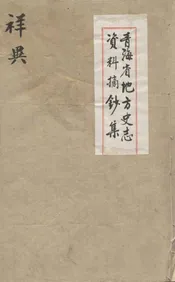 青海省地方史志
资料摘鈔集
祥異